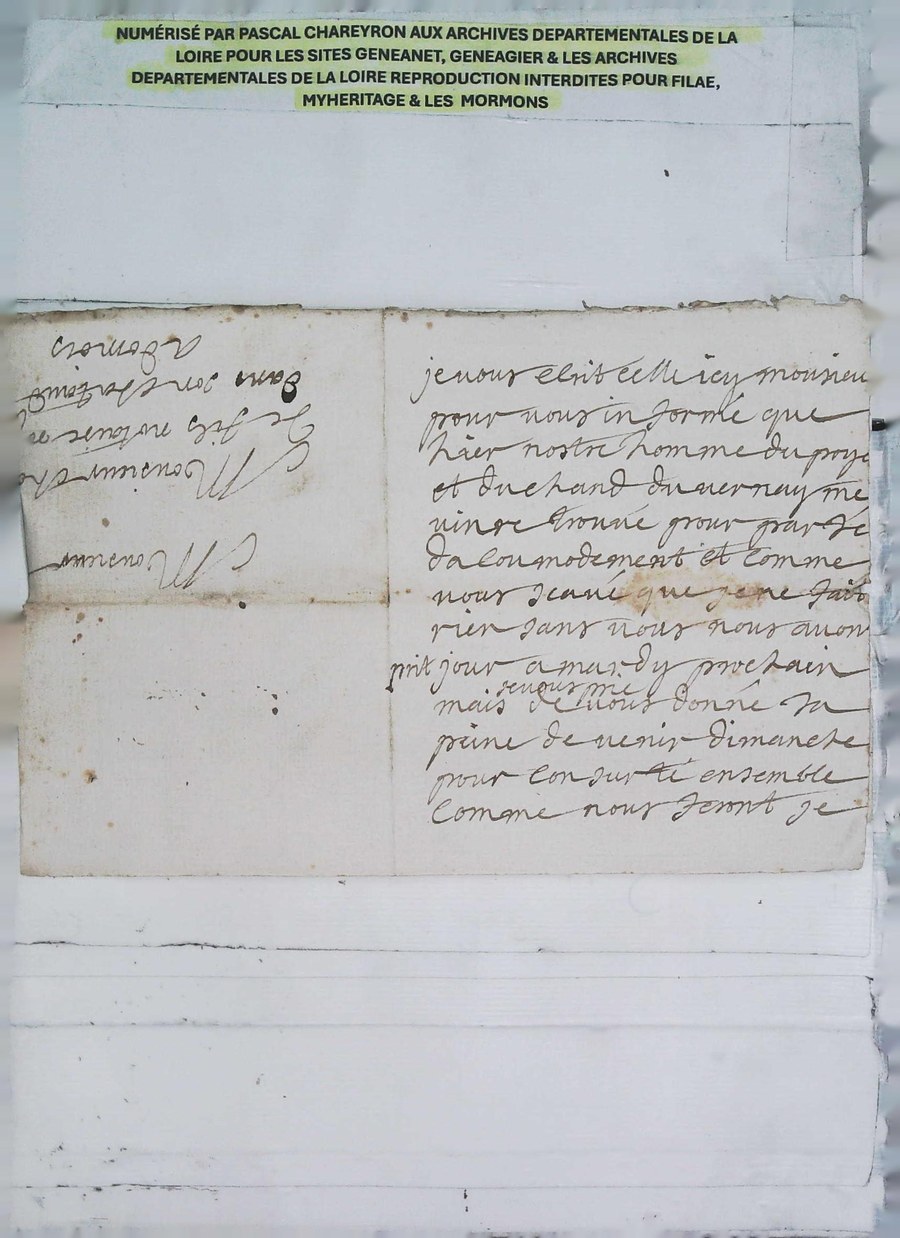 NUMÉRISÉ PAR PASCAL CHAREYRON AUX ARCHIVES DEPARTEMENTALES DE LA
LOIRE POUR LES SITES GENEANET, GENEAGIER & LES ARCHIVES
DEPARTEMENTALES DE LA LOIRE REPRODUCTION INTERDITES POUR FILAE,
MYHERITAGE & LES MORMONS
Monsieur
Monsieur
le fils notoire
dans son
je vous escrit celle icy monsieu
pour vous informé que
hier nostre homme du
et duchand du vernay me
vinre trouvé pour parle
dacoumodement et comme
vous scavé que je ne fait
rien sans vous nous avon
prit jour a mardy prochain
mais de vous donné la
peine de venir dimanche
pour consurté ensemble
comme nous feront je